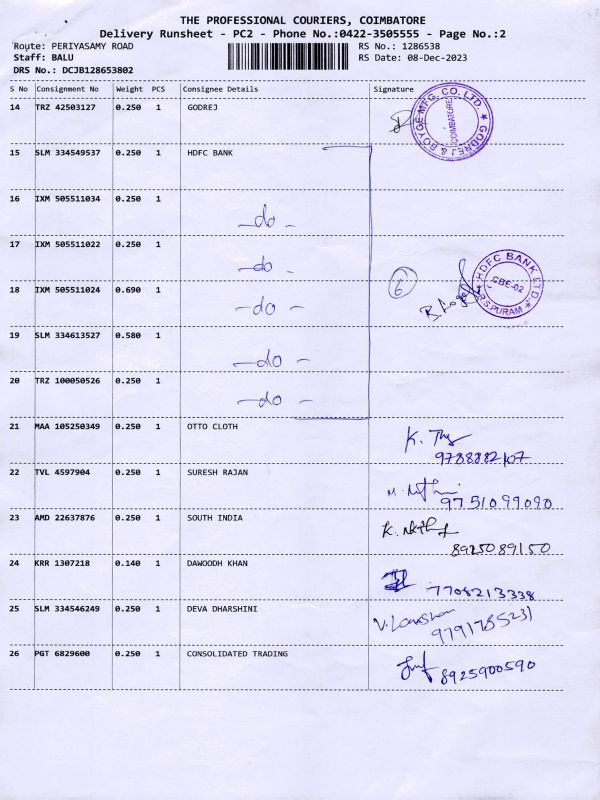 THE PROFESSIONAL COURIERS, COIMBATORE
Delivery Runsheet - PC2 - Phone No.:0422-3505555 - Page No.:2
Route: PERIYASAMY ROAD RS No.: 1286538
Staff: BALU RS Date: 08-Dec-2023
DRS No.: DCJB128653802
S No Consignment No Weight PCS Consignee Details Signature
14 TRZ 42503127 0.250 1 GODREJ
GODREJ & BOYCE MFG. CO. LTD. COIMBATORE
15 SLM 334549537 0.250 1 HDFC BANK
16 IXM 505511034 0.250 1
-do-
17 IXM 505511022 0.250 1
-do-
HDFC BANK LTD. CBE-02 R.S.PURAM
18 IXM 505511024 0.690 1 6
-do-
19 SLM 334613527 0.580 1
-do-
20 TRZ 100050526 0.250 1
-do-
21 MAA 105250349 0.250 1 OTTO CLOTH
22 TVL 4597904 0.250 1 SURESH RAJAN
9751099090
23 AMD 22637876 0.250 1 SOUTH INDIA
8925089150
24 KRR 1307218 0.140 1 DAWOODH KHAN
7708213338
25 SLM 334546249 0.250 1 DEVA DHARSHINI
9791785231
26 PGT 6829600 0.250 1 CONSOLIDATED TRADING
8925900590